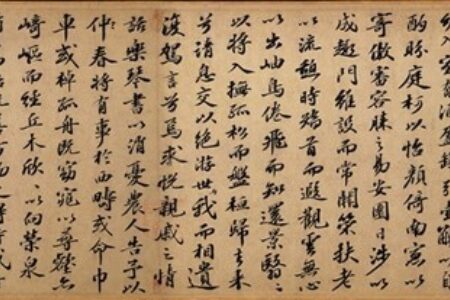 入室有酒盈罇引壺觴以自
酌眄庭柯以怡顏倚南窗以
寄傲審容膝之易安園日涉以
成趣門雖設而常關策扶老
以流憩時矯首而遐觀雲無心
以出岫鳥倦飛而知還景翳〻
以將入撫孤松而盤桓歸去來
兮請息交以絕游世我而相遺
復駕言兮焉求悅親戚之情
話樂琴書以消憂農人告予以
仲春將有事於西疇或命巾
車或棹孤舟既窈窕以尋壑亦
崎嶇而經丘木欣〻以向榮泉